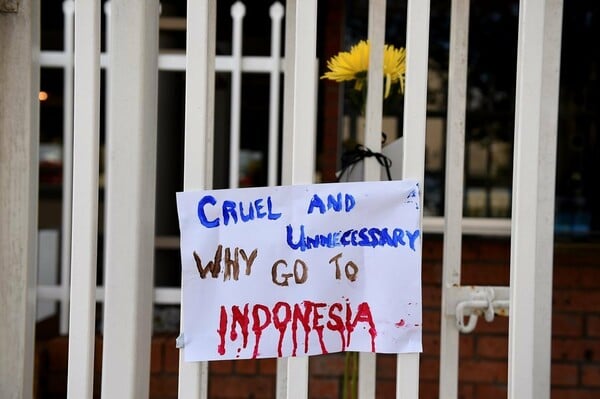 CRUEL AND
UNNECESSARY
WHY GO TO
INDONESIA